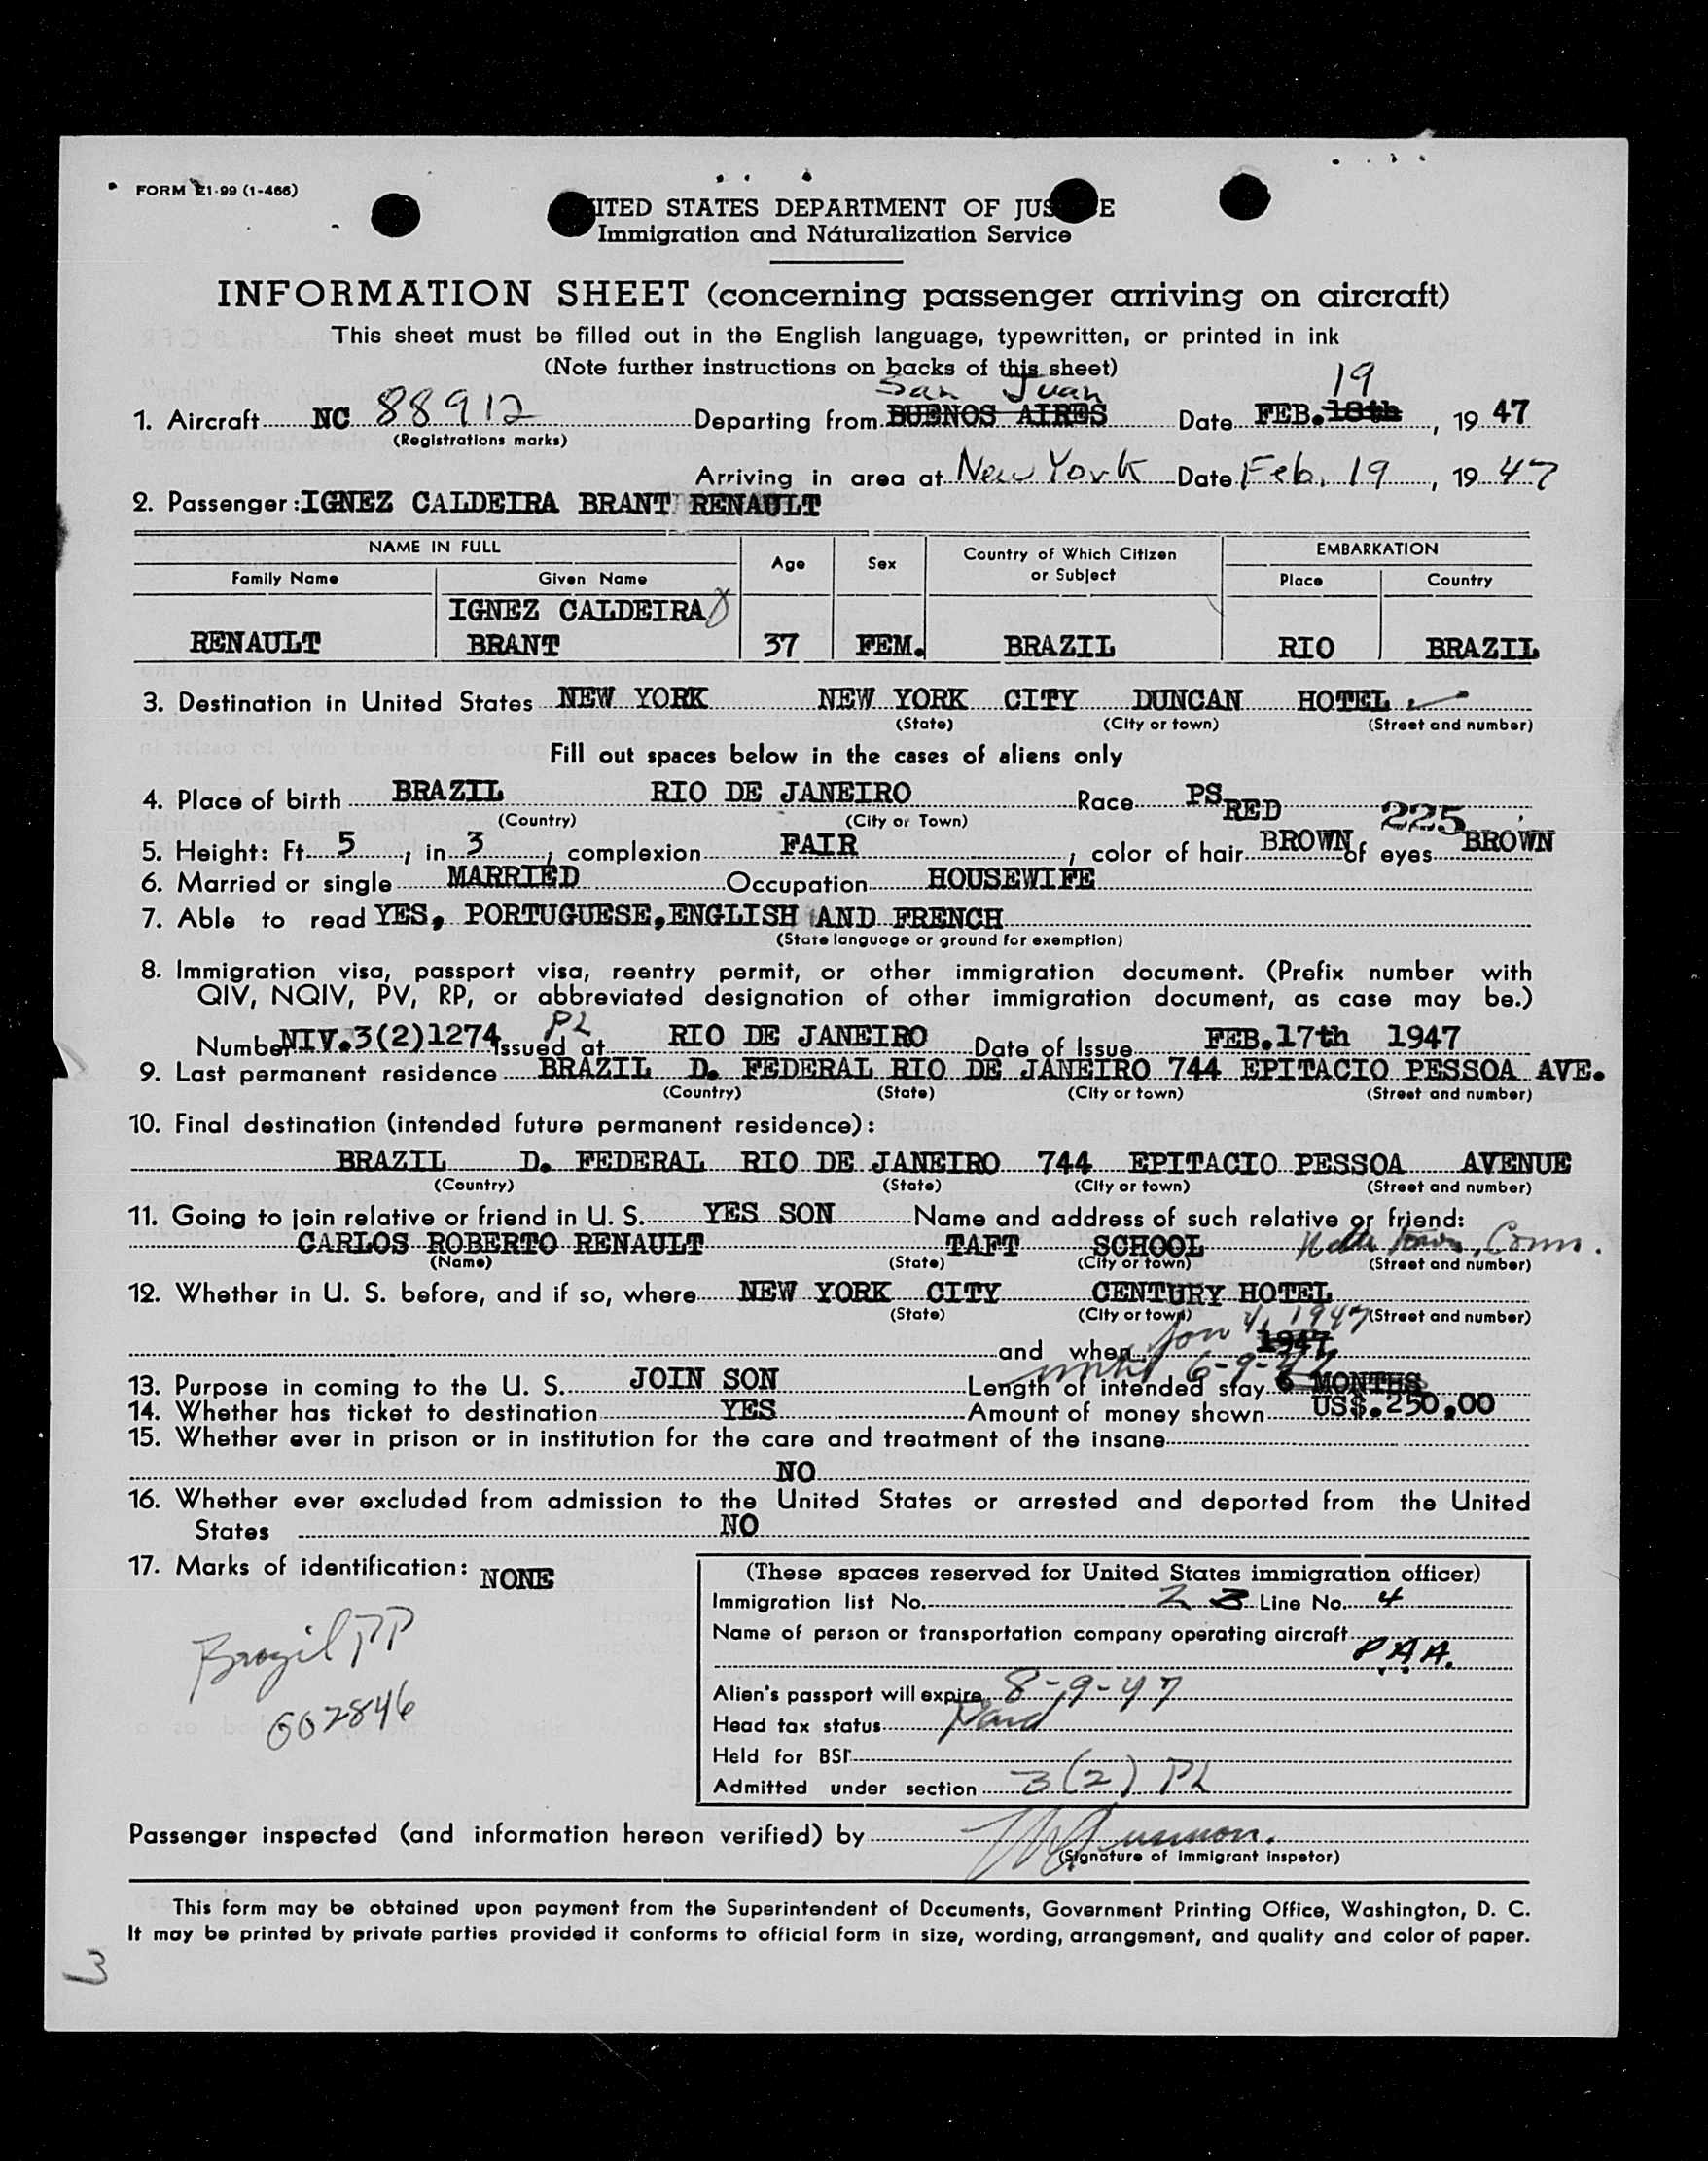 FORM I-99 (1-466)
ITED STATES DEPARTMENT OF JUS E
Immigration and Naturalization Service
INFORMATION SHEET (concerning passenger arriving on aircraft)
This sheet must be filled out in the English language, typewritten, or printed in ink
(Note further instructions on backs of this sheet)
San Juan 19
1. Aircraft NC 88912 Departing from BUENOS AIRES Date FEB. 18th, 19 47
(Registrations marks)
Arriving in area at New York Date Feb. 19, 19 47
2. Passenger: IGNEZ CALDEIRA BRANT RENAULT
NAME IN FULL Age Sex Country of Which Citizen or Subject EMBARKATION
Family Name Given Name Place Country
IGNEZ CALDEIRA
RENAULT BRANT 37 FEM. BRAZIL RIO BRAZIL
3. Destination in United States NEW YORK NEW YORK CITY DUNCAN HOTEL
(State) (City or town) (Street and number)
Fill out spaces below in the cases of aliens only
4. Place of birth BRAZIL RIO DE JANEIRO Race PS RED 225
(Country) (City or Town)
5. Height: Ft. 5, in 3; complexion FAIR; color of hair BROWN of eyes BROWN
6. Married or single MARRIED Occupation HOUSEWIFE
7. Able to read YES, PORTUGUESE, ENGLISH AND FRENCH
(State language or ground for exemption)
8. Immigration visa, passport visa, reentry permit, or other immigration document. (Prefix number with
QIV, NQIV, PV, RP, or abbreviated designation of other immigration document, as case may be.)
Number NIV.3(2)1274 PL Issued at RIO DE JANEIRO Date of Issue FEB.17th 1947
9. Last permanent residence BRAZIL D. FEDERAL RIO DE JANEIRO 744 EPITACIO PESSOA AVE.
(Country) (State) (City or town) (Street and number)
10. Final destination (intended future permanent residence):
BRAZIL D. FEDERAL RIO DE JANEIRO 744 EPITACIO PESSOA AVENUE
(Country) (State) (City or town) (Street and number)
11. Going to join relative or friend in U. S. YES SON Name and address of such relative or friend:
CARLOS ROBERTO RENAULT TAFT SCHOOL Conn.
(Name) (State) (City or town) (Street and number)
12. Whether in U. S. before, and if so, where NEW YORK CITY CENTURY HOTEL
(State) (City or town) (Street and number)
and when Jan 4, 1947 1947
13. Purpose in coming to the U. S. JOIN SON Length of intended stay 6 MONTHS until 6-9-47
14. Whether has ticket to destination YES Amount of money shown US$.250,00
15. Whether ever in prison or in institution for the care and treatment of the insane
NO
16. Whether ever excluded from admission to the United States or arrested and deported from the United
States NO
17. Marks of identification: NONE
Brazil PP
002846
(These spaces reserved for United States immigration officer)
Immigration list No. 2 3 Line No. 4
Name of person or transportation company operating aircraft
P.A.A.
Alien's passport will expire 8-9-47
Head tax status Paid
Held for BSI
Admitted under section 3(2) PL
Passenger inspected (and information hereon verified) by
(Signature of Immigrant Inspetor)
This form may be obtained upon payment from the Superintendent of Documents, Government Printing Office, Washington, D. C.
It may be printed by private parties provided it conforms to official form in size, wording, arrangement, and quality and color of paper.
3